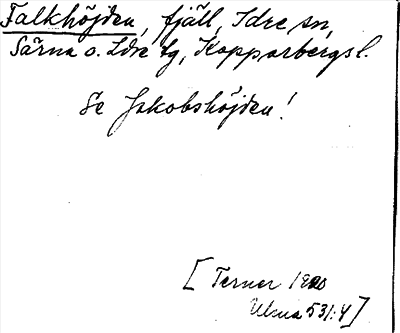 Falkhöjden, fjäll, Idre sn,
Särna o. Idre tg, Kopparbergs l.
Se Jakobshöjden!
[Terner
Ulma 531:4]